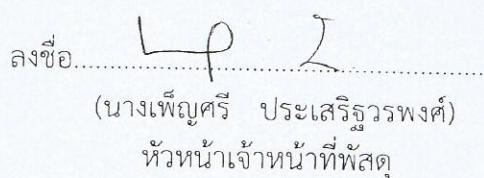 ลงชื่อ........................................................
(นางเพ็ญศรี ประเสริฐวรพงศ์)
หัวหน้าเจ้าหน้าที่พัสดุ